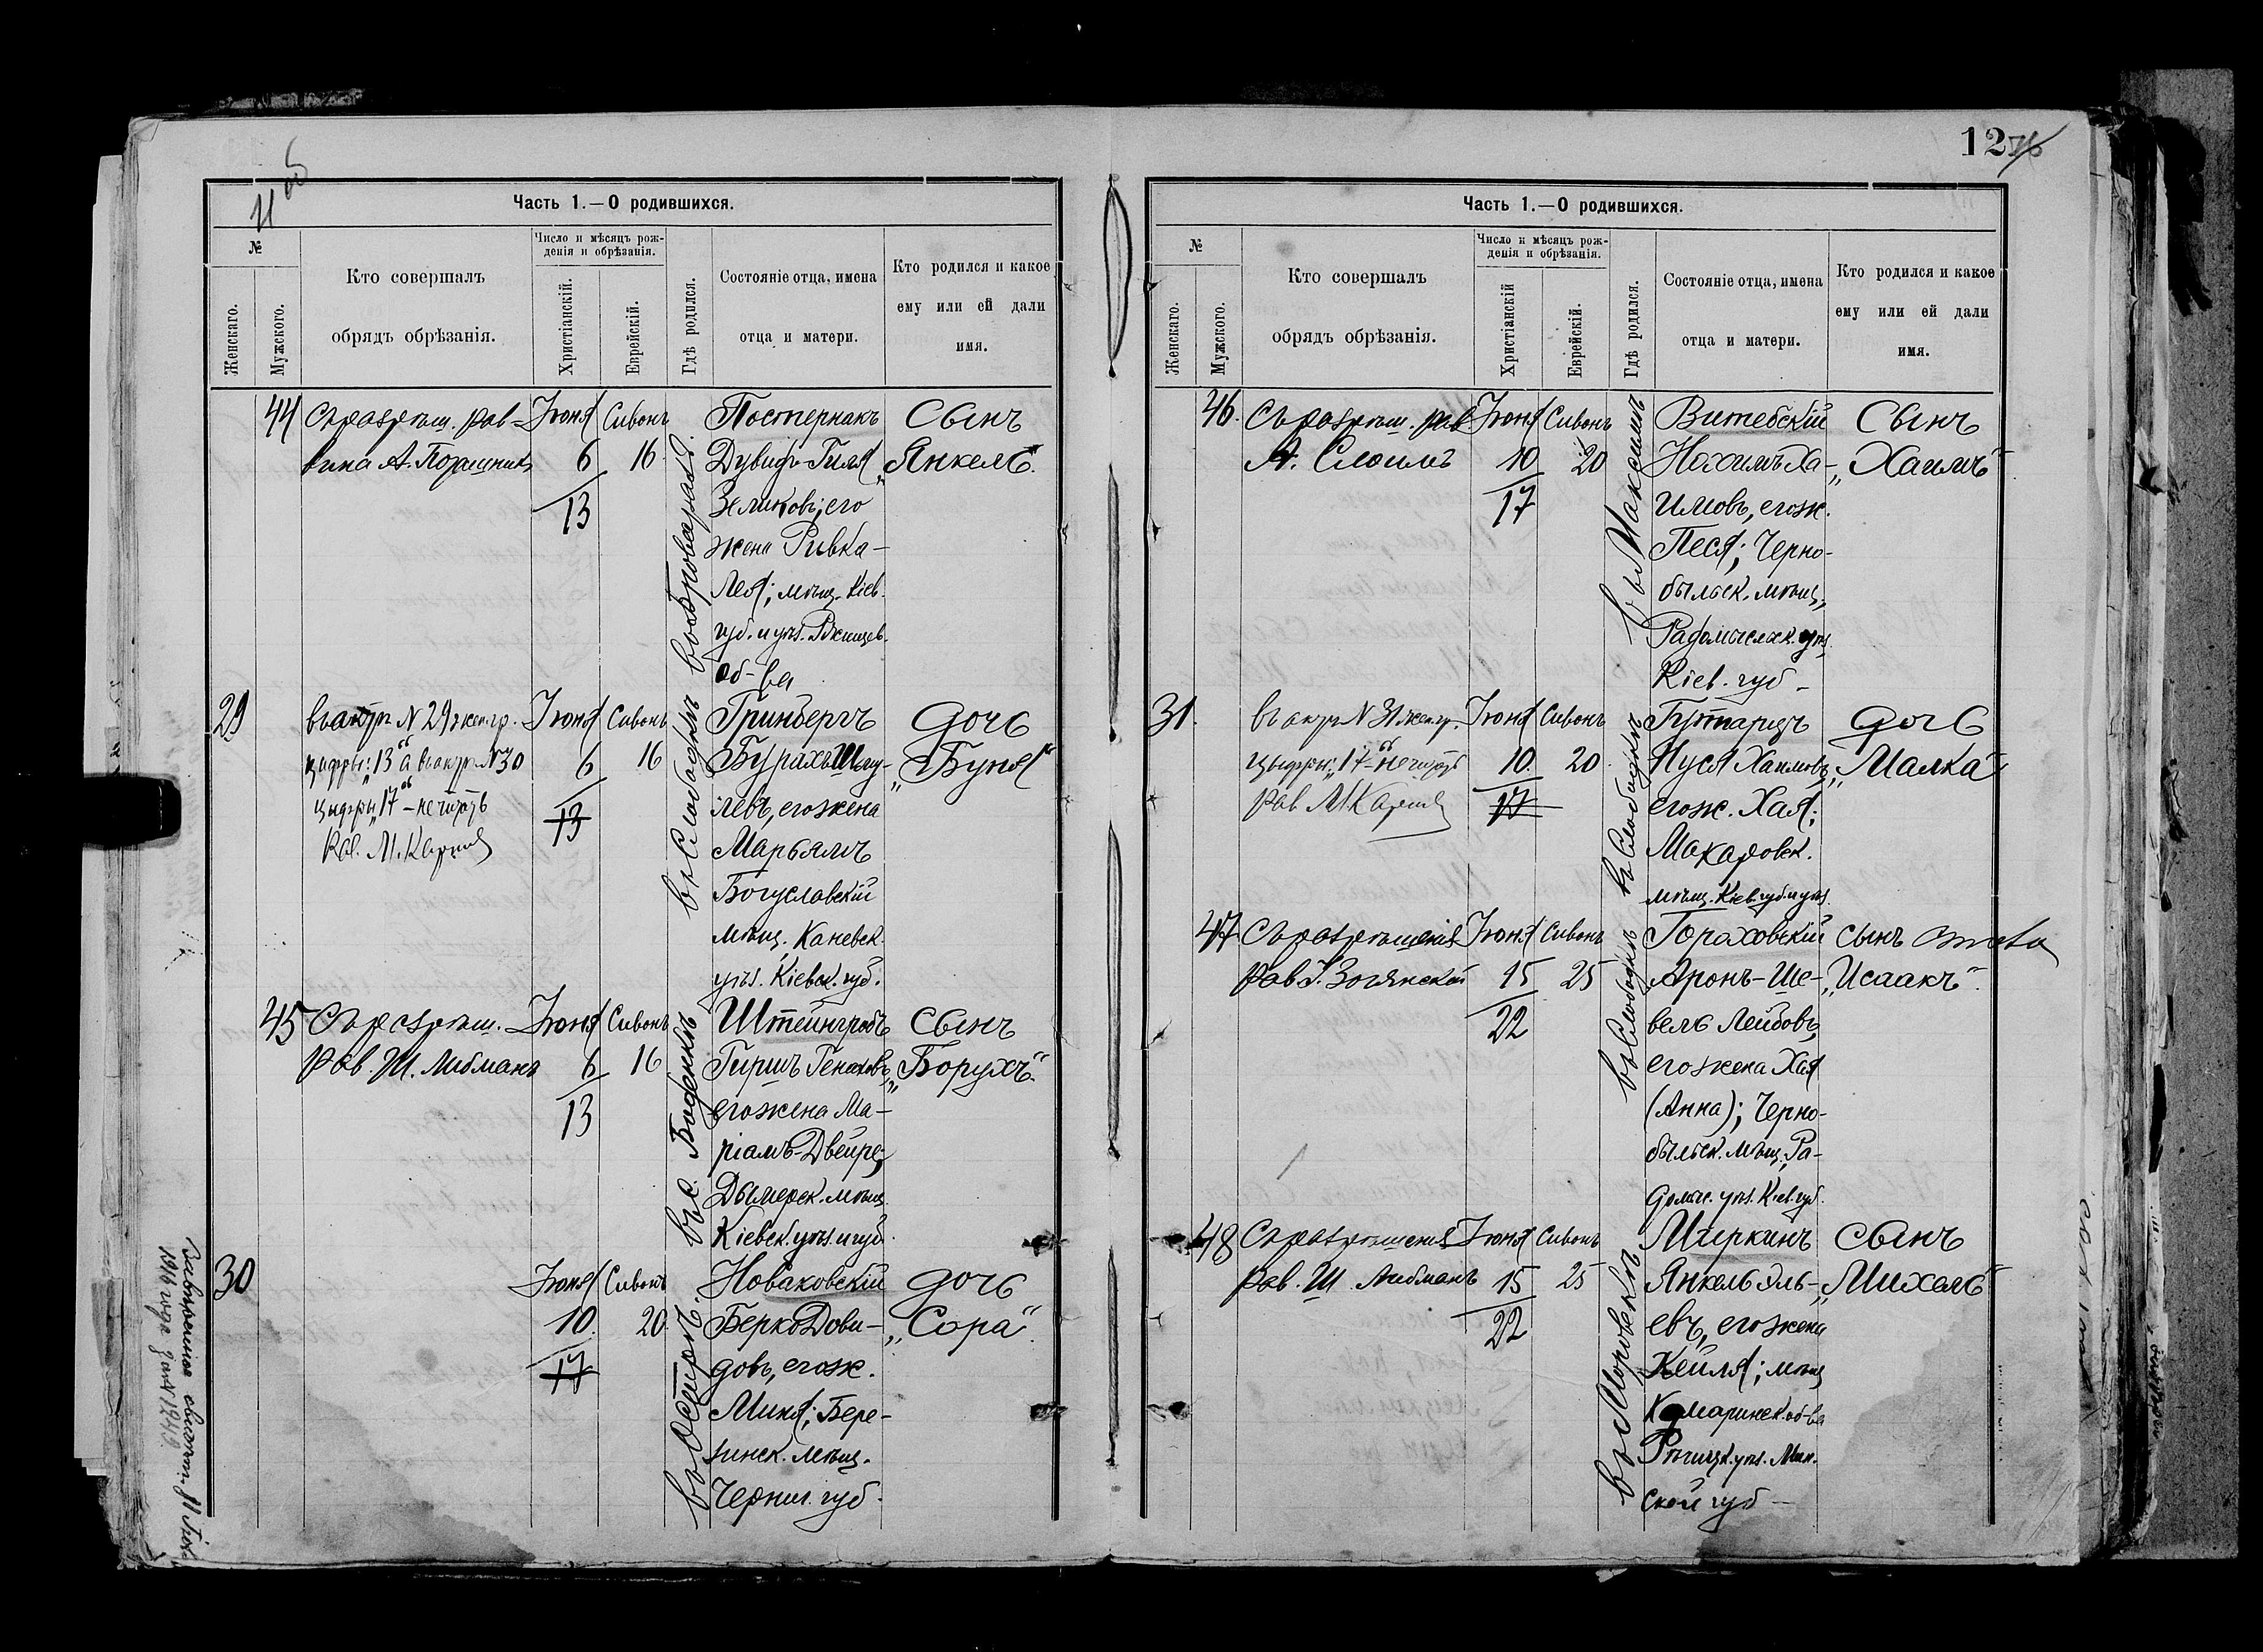 12
Часть 1.—О родившихся.
№
Женскаго.
Мужского.
Кто совершалъ
обрядъ обрѣзанія.
Число и мѣсяцъ рож-
денія и обрѣзанія.
Христіанскій.
Еврейскій.
Гдѣ родился.
Состояніе отца, имена
отца и матери.
Кто родился и какое
ему или ей дали
имя.
44
Съ разрѣш. рав-
вина А.
Іюня
6
13
Сивонъ
16
Постернакъ
Дувидъ-Гиля
Зеликовъ; его
жена Ривка-
Лея; мѣщ. Кіев.
губ. и уѣз. Ржищев.
об-ва
Сынъ
„Янкель“
29
въ актѣ № 29 женс. гр.
цифры: „13“ а въ актѣ № 30
цыфры „17“ – не читать
Рав.
Іюня
6
13
Сивонъ
16
въ Слободкѣ
Гринбергъ
Бурахъ Шму-
левъ, его жена
Марьямъ
Богуславскій
мѣщ. Каневск.
уѣз. Кіевск. губ.
дочь
„Буня“
45
Съ разрѣш.
рав. Ш. Либмана
Іюня
6
13
Сивонъ
16
Штейнгробъ
Гиршъ Геноховъ,
его жена Ма-
ріамъ-Двейре;
Дымерск. мѣщ.
Кіевск. уѣз. и губ.
Сынъ
„Борухъ“
30
Іюня
10
17
Сивонъ
20
въ Острѣ.
Новаковскій
Берко Дови-
довъ, его ж.
Миня; Бере-
зинск. мѣщ.
Черниг. губ.
дочь
„Сора“
Часть 1.—О родившихся.
№
Женскаго.
Мужского.
Кто совершалъ
обрядъ обрѣзанія.
Число и мѣсяцъ рож-
денія и обрѣзанія.
Христіанскій
Еврейскій.
Гдѣ родился.
Состояніе отца, имена
отца и матери.
Кто родился и какое
ему или ей дали
имя.
46.
Съ разрѣш. рав
А. Слоимъ
Іюня
10
17
Сивонъ
20
Витебскій
Нохимъ Ха-
имовъ, его ж.
Песя; Черно-
быльск. мѣщ.,
Радомысльск. уѣз.
Кіев. губ –
Сынъ
„Хаимъ“
31.
въ актѣ № 31 женс. гр.
цыфры: „17“ – не читать
Рав.
Іюня
10.
17
Сивонъ
20.
въ Слободкѣ
Гутарицъ
Нуся Хаимовъ,
его ж. Хая;
Макаровск.
мѣщ. Кіев. губ. и уѣз.
дочь
„Малка“
47
Съ разрѣшенія
рав
Іюня
15
22
Сивонъ
25
въ Слободкѣ
Гораховскій
Аронъ-Ше-
вель Лейбовъ,
его жена Хая
(Анна); Черно-
быльск. мѣщ. Ра-
домыс. уѣз. Кіев. губ.
сынъ
„Исаакъ“
48
Съ разрѣшенія
рав. Ш. Либманъ
Іюня
15
22
Сивонъ
25
въ Моровскѣ
Миеркинъ
Янкель Эль-
евъ, его жена
Кейля; мѣщ
Комаринск. об-ва
Рѣчицк. уѣз. Мин-
ской губ –
сынъ
„Михель“